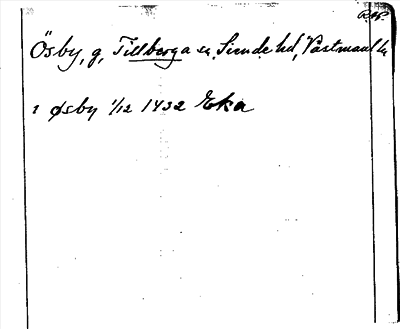 Ösby, g, Tillberga sn, Simde hd, Västmanl ln
i Øsby 1/12 1432 Eka